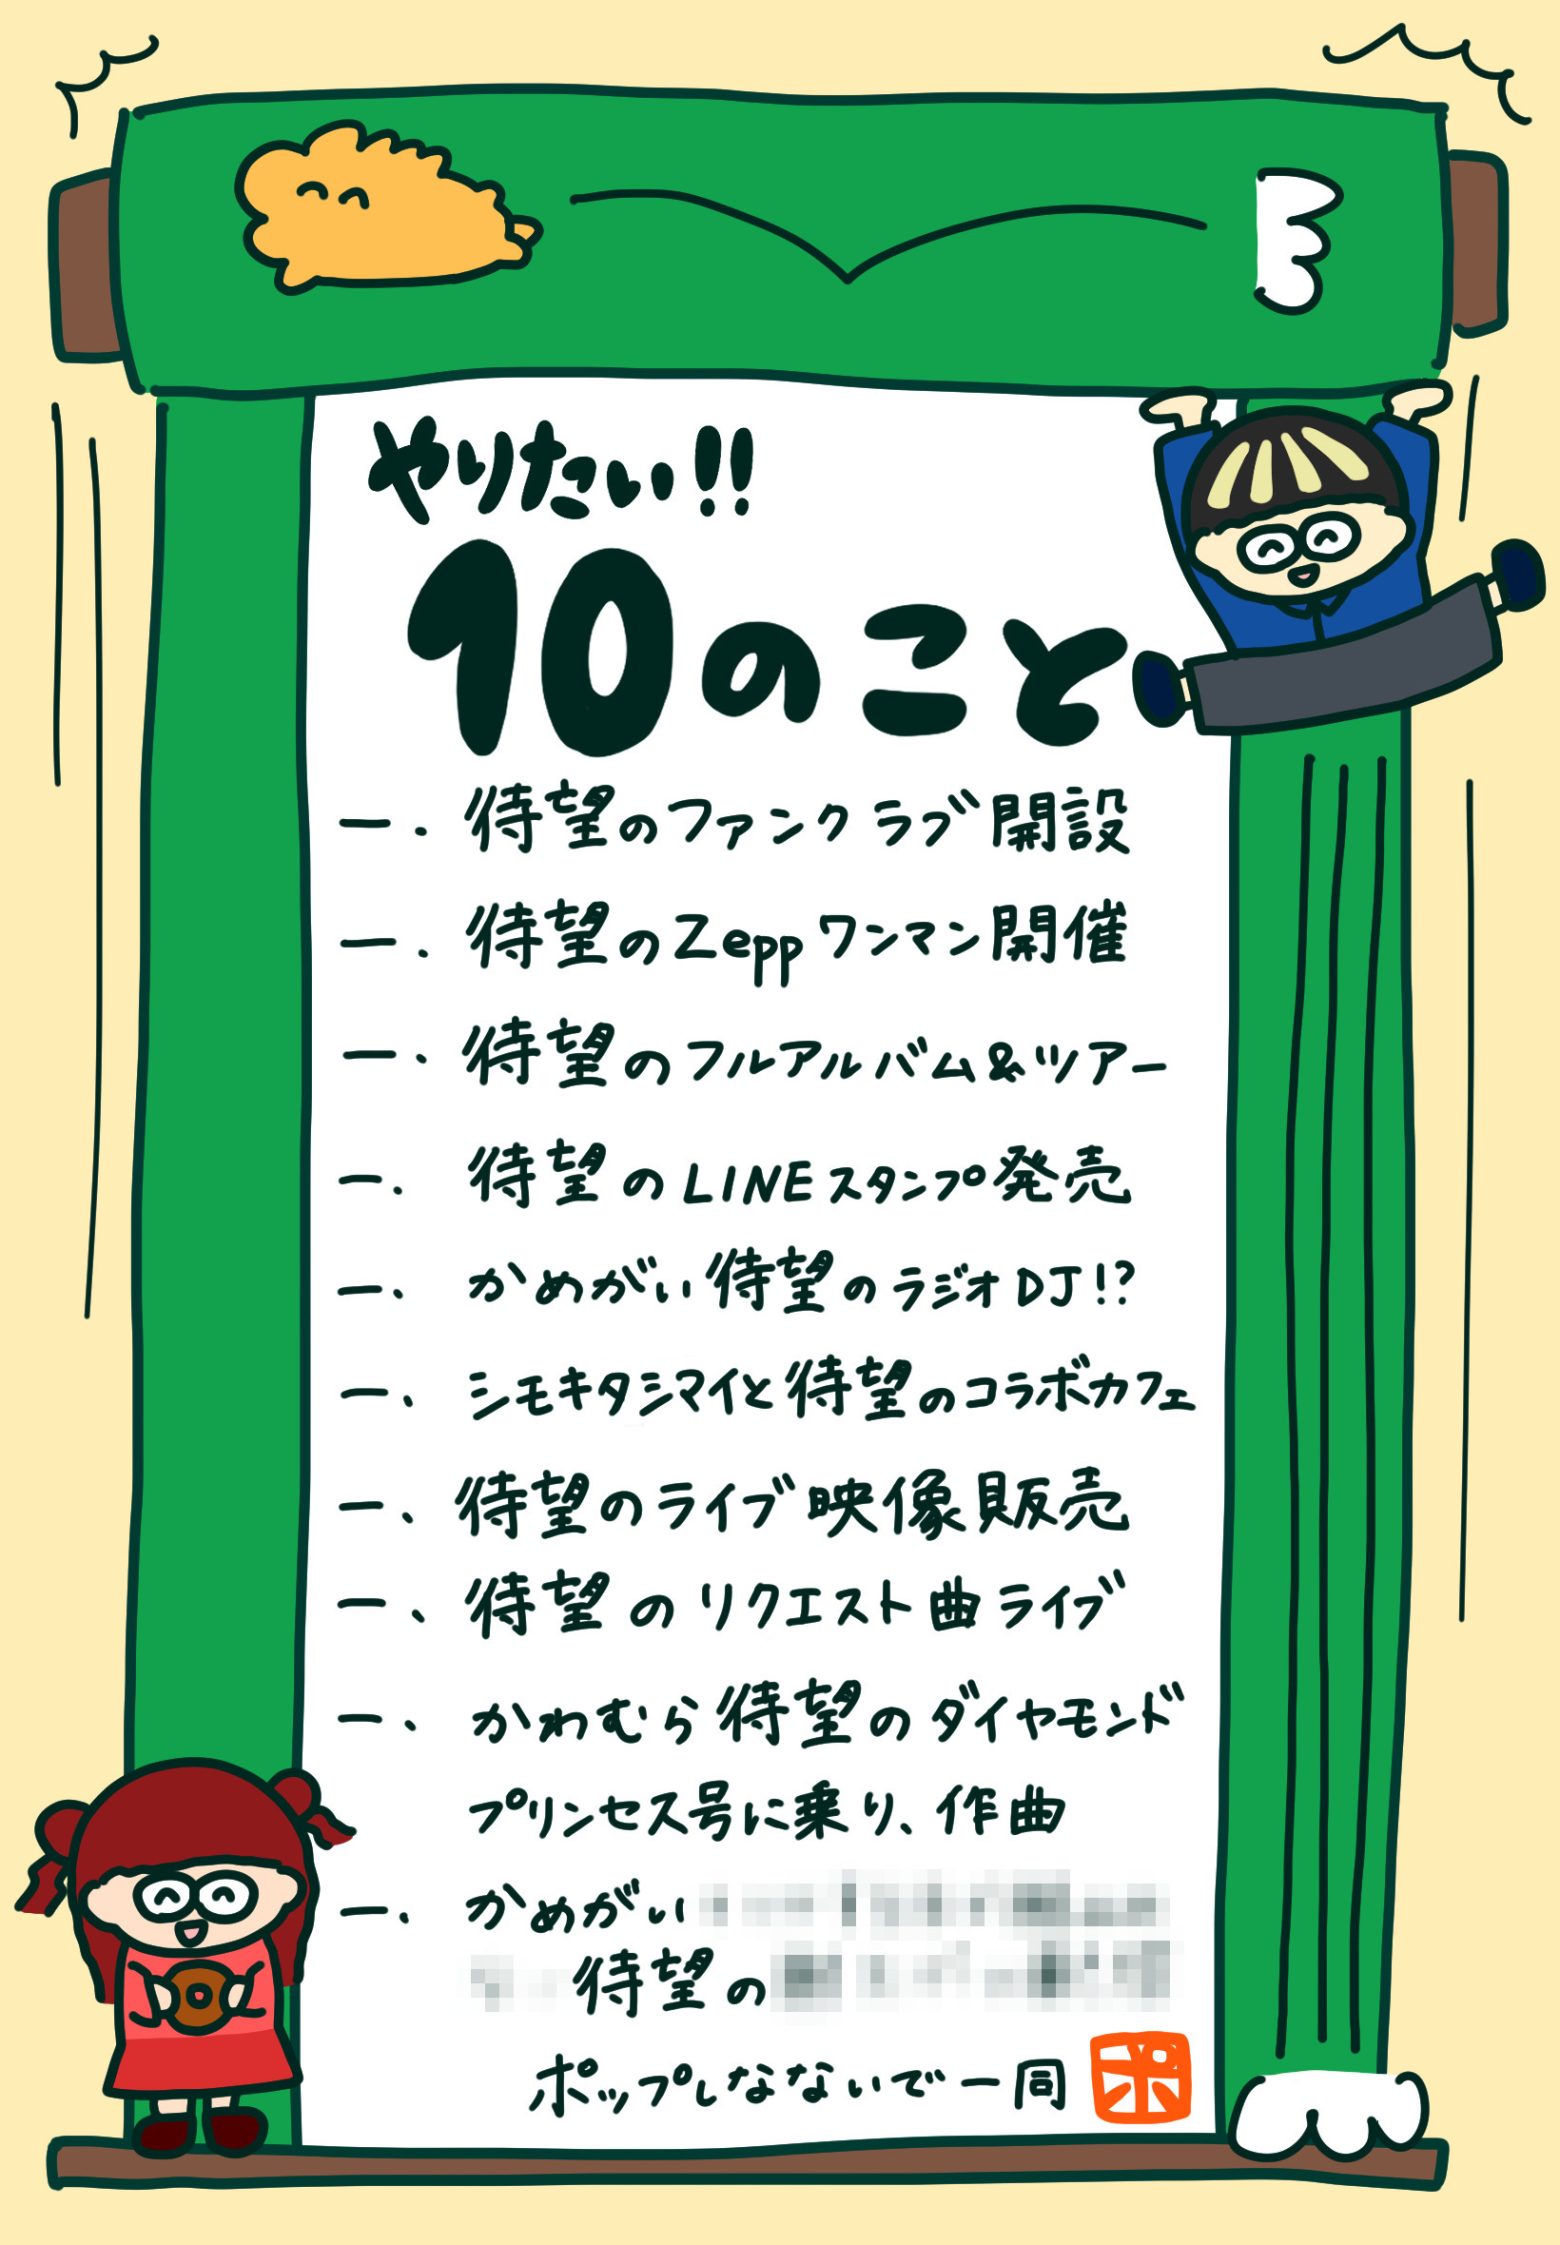 やりたい!!
10のこと
一. 待望のファンクラブ開設
一. 待望のZeppワンマン開催
一、待望のフルアルバム&ツアー
一. 待望のLINEスタンプ発売
一、かめがい待望のラジオDJ!?
一、シモキタシマイと待望のコラボカフェ
一、待望のライブ映像販売
一、待望のリクエスト曲ライブ
一、かわむら待望のダイヤモンド
プリンセス号に乗り、作曲
一. かめがい
待望の
ポップしなないで一同
ポ